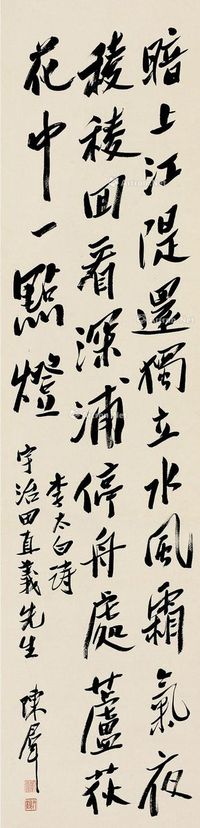 暗上江隄還獨立水風霜氣夜
稜稜回看深浦停舟處蘆荻
花中一點燈
李太白詩
宇治田直義先生
陳群